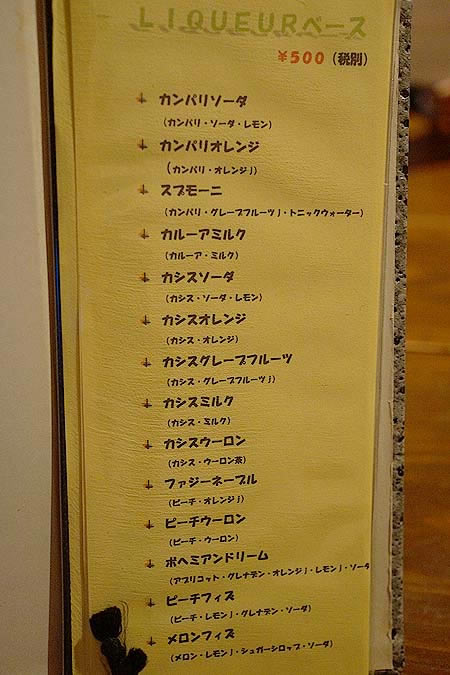 LIQUEURベース
¥500(税別)
カンパリソーダ
(カンパリ・ソーダ・レモン)
カンパリオレンジ
(カンパリ・オレンジJ)
スプモーニ
(カンパリ・グレープフルーツJ・トニックウォーター)
カルーアミルク
(カルーア・ミルク)
カシスソーダ
(カシス・ソーダ・レモン)
カシスオレンジ
(カシス・オレンジ)
カシスグレープフルーツ
(カシス・グレープフルーツJ)
カシスミルク
(カシス・ミルク)
カシスウーロン
(カシス・ウーロン茶)
ファジーネーブル
(ピーチ・オレンジJ)
ピーチウーロン
(ピーチ・ウーロン)
ボヘミアンドリーム
(アプリコット・グレナデン・オレンジJ・レモンJ・ソーダ
ピーチフィズ
(ピーチ・レモンJ・グレナデン・ソーダ)
メロンフィズ
(メロン・レモンJ・シュガーシロップ・ソーダ)